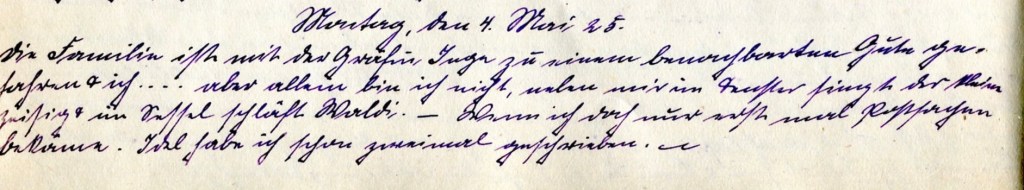 Montag, den 4. Mai 25.
Die Familie ist mit der Gräfin Inge zu einem benachbarten Gute ge-
fahren & ich.... aber allein bin ich nicht, neben mir im Fenster singt der kleine
Zeisig & im Sessel schläft Waldi. — Wenn ich doch nur erst mal Postsachen
bekäme. Idel habe ich schon zweimal geschrieben. —